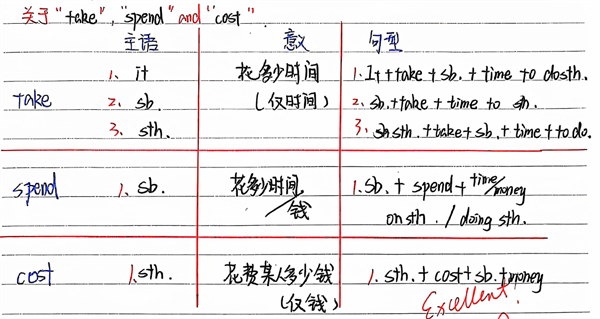 关于“take”, “spend” and “cost”
主语 意义 句型
1. it 花多少时间 1. It+take+sb.+time to do sth.
take 2. sb. (仅时间) 2. sb.+take+time to sth.
3. sth. 3. sth.+take+sb.+time+to do.
spend 1. sb. 花多少时间/钱 1. sb. + spend + time/money
on sth. / doing sth.
cost 1. sth. 花费某人多少钱 1. sth.+cost+sb.+money
(仅钱) Excellent!